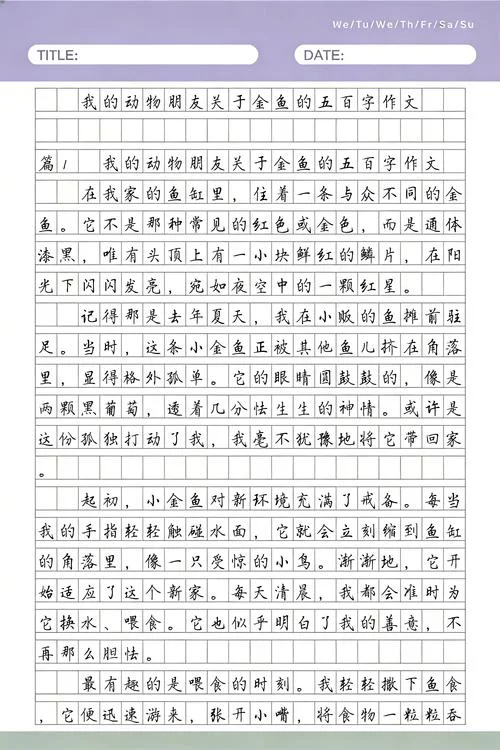 We/Tu/We/Th/Fr/Sa/Su
TITLE:
DATE:
我的动物朋友关于金鱼的五百字作文
篇1 我的动物朋友关于金鱼的五百字作文
在我家的鱼缸里，住着一条与众不同的金
鱼。它不是那种常见的红色或金色，而是通体
漆黑，唯有头顶上有一小块鲜红的鳞片，在阳
光下闪闪发亮，宛如夜空中的一颗红星。
记得那是去年夏天，我在小贩的鱼摊前驻
足。当时，这条小金鱼正被其他鱼儿挤在角落
里，显得格外孤单。它的眼睛圆鼓鼓的，像是
两颗黑葡萄，透着几分怯生生的神情。或许是
这份孤独打动了我，我毫不犹豫地将它带回家
。
起初，小金鱼对新环境充满了戒备。每当
我的手指轻轻触碰水面，它就会立刻缩到鱼缸
的角落里，像一只受惊的小鸟。渐渐地，它开
始适应了这个新家。每天清晨，我都会准时为
它换水、喂食。它也似乎明白了我的善意，不
再那么胆怯。
最有趣的是喂食的时刻。我轻轻撒下鱼食
，它便迅速游来，张开小嘴，将食物一粒粒吞